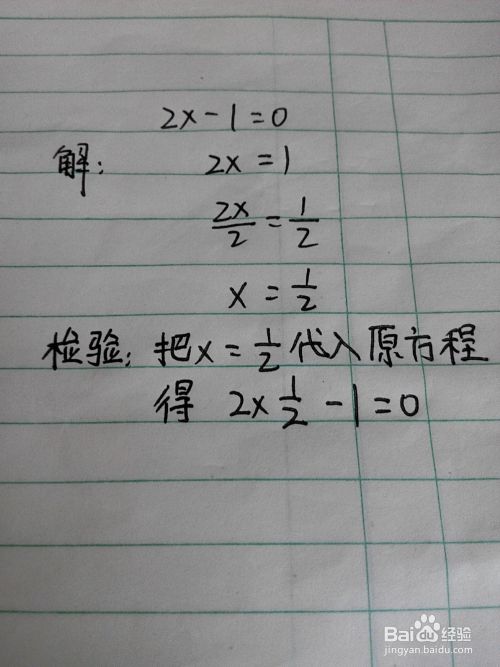 2x-1=0
解: 2x=1
2x/2=1/2
x=1/2
检验: 把x=1/2代入原方程
得 2×1/2-1=0
Bai du 经验
jingyan.baidu.com